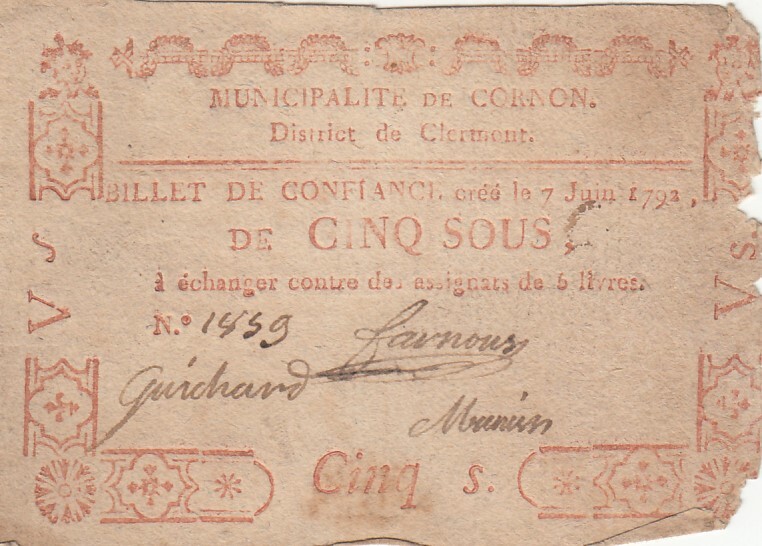 MUNICIPALITE DE CORNON.
District de Clermont.
BILLET DE CONFIANCE, créé le 7 Juin 1792,
DE CINQ SOUS
à échanger contre des assignats de 5 livres.
N.° 1859
Guichard
V s
V s.
Cinq s.